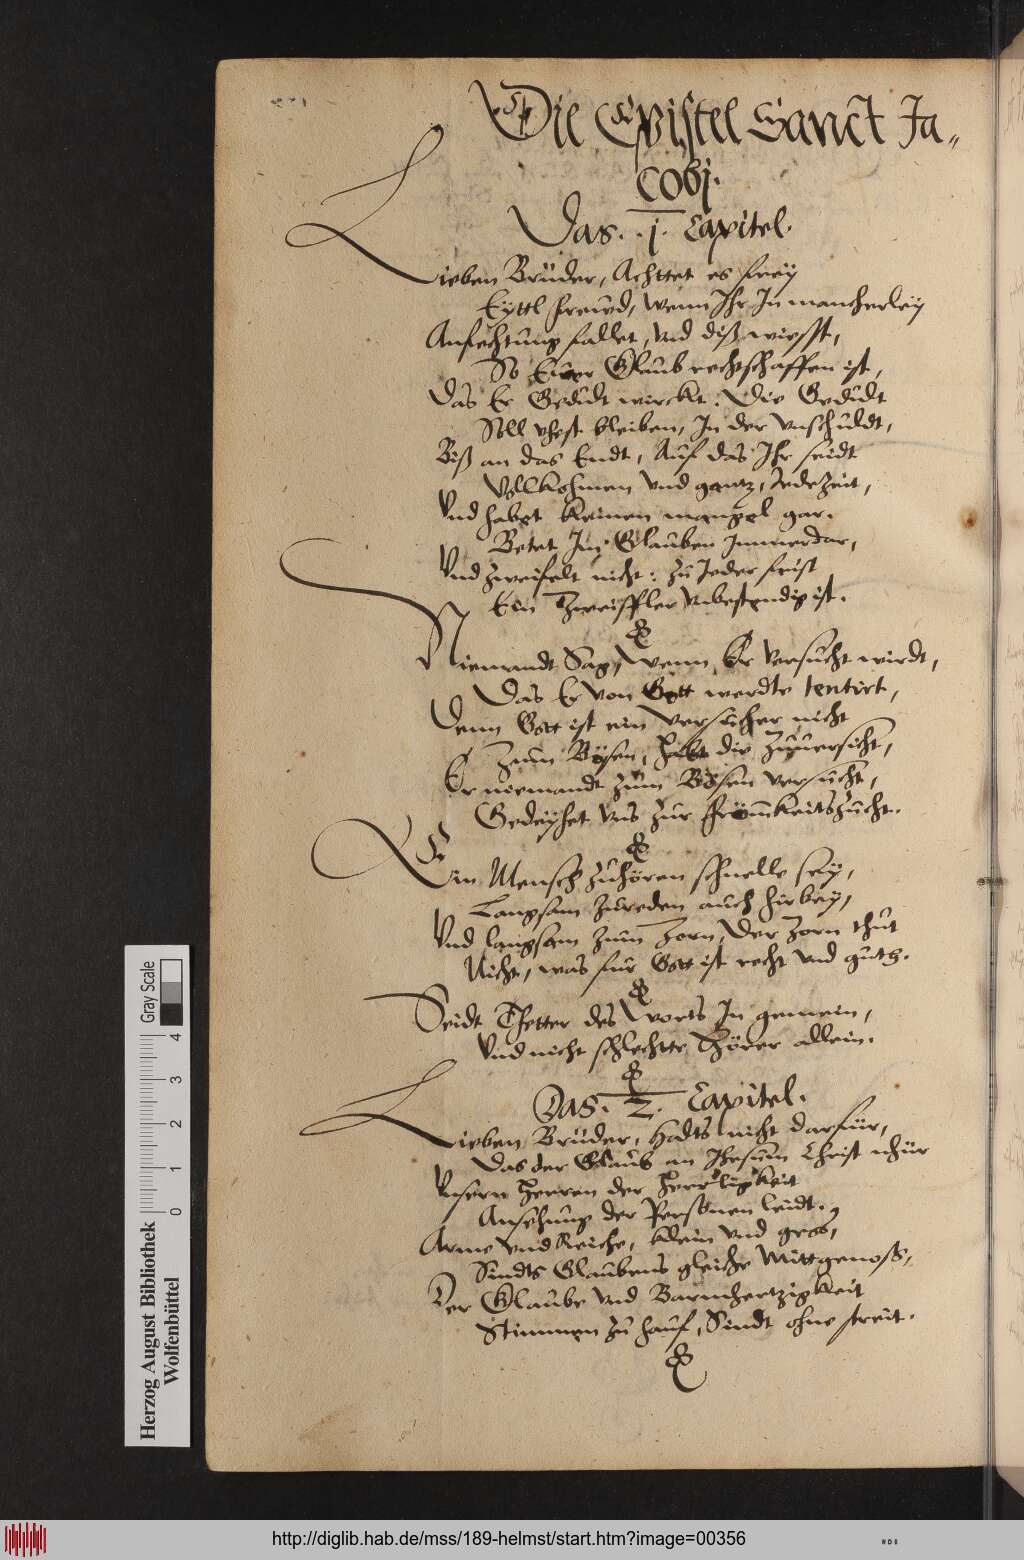 Die Epistel Sanct Ja„
cobj.
Das. j. Capitel.
Lieben Brüder, Achttet es frey
Eyttl frewd, wenn Ihr In mancherley
Anfechtung fallet, vnd diß wisst,
So Ewer Glaub rechtschaffen ist,
Das Er Gedudt wirckt: Die Gedudt
Soll vhest bleiben, In der vnschuldt,
Biß an das Endt, Auf das Ihr seidt
Vollkohmen vnd gantz, Jede Zeit,
Vnd habet keinen mangel gar.
Betet Im Glauben Immerdar,
Vnd zweifelt nicht: zu Jeder frist
Ein Zweiffler vnbestendig ist.
Niemandt Sag, wenn Er versucht wirdt,
Das Er von Gott werdte tentirt,
Denn Gott ist ein versucher nicht
Zum Bösen, habt die Zuuersicht,
Er niemandt zum Bösen versucht,
Gedeyhet vns zur frömkeitszucht.
Ein Mensch zuhören schnelle sey,
Langsam zureden auch hirbey,
Vnd langsam zum Zorn, Der Zorn thut
Nicht, was fur Gott ist recht vnd guth.
Seidt Thetter des Worts In gemein,
Vnd nicht schlechte Hörer allein.
Das. 2. Capitel.
Lieben Brüder, hadts nicht darfür,
Das der Glaub an Jhesum Christ nhür
Vnsern Herren der Herrligkeit
Ansehung der Personen leidt.
Arme vnd Reiche, klein vnd gros,
Sindts Glaubens gleiche Mittgenoss,
Der Glaube vnd Barmhertzigkeit
Stimmen zu hauf, Sindt ohne streit.
Herzog August Bibliothek
Wolfenbüttel
0 1 2 3 4
Gray Scale
http://diglib.hab.de/mss/189-helmst/start.htm?image=00356